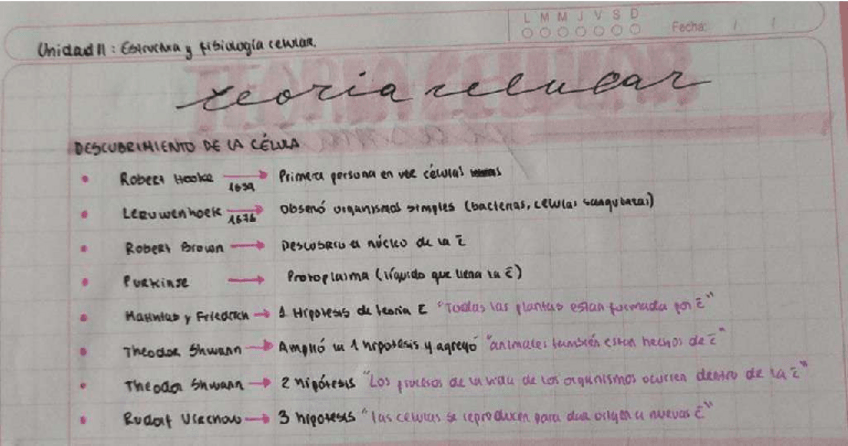 L M M J V S D
Fecha:
Unidad II: Estructura y fisiología celular.
TEORIA CELULAR
teoria celular
DESCUBRIMIENTO DE LA CÉLULA
• Robert Hooke → Primera persona en ver células
• Leeuwenhoek 1676 → Observó organismos simples (bacterias, celulas sanguineas)
• Robert Brown → Descubrio el núcleo de la c̄
• Purkinse → Protoplasma (líquido que llena la c̄)
• Matthias y Friedrich → 1 Hipotesis de teoria C "Todas las plantas estan formada por c̄"
• Theodor Shwann → Amplió la 1 hipotesis y agregó "animales también estan hechos de c̄"
• Theodor Shwann → 2 hipótesis "Los procesos de la vida de los organismos ocurren dentro de la c̄"
• Rudolf Virchow → 3 hipotesis "las células se reproducen para dar origen a nuevas c̄"